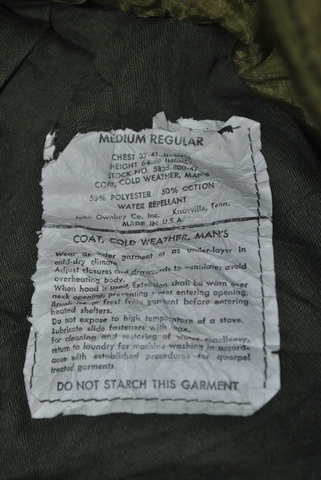 MEDIUM REGULAR
CHEST 37-41 INCHES
HEIGHT 64- INCHES
STOCK NO. 5835 800-47
COAT, COLD WEATHER, MAN'S
50% POLYESTER 50% COTTON
WATER REPELLANT
John Ownbey Co. Inc. Knoxville, Tenn.
MADE IN U.S.A.
COAT, COLD WEATHER, MAN'S
Wear as outer garment or as under-layer in
cold-dry climate.
Adjust closures and drawcords to ventilate; avoid
overheating body.
When hood is used, Extension shall be worn over
neck opening, preventing water entering opening.
Brush ice or frost from garment before entering
heated shelters.
Do not expose to high temperature of a stove.
Lubricate slide fasteners with wax.
For cleaning and restoring of water repellency,
return to laundry for machine washing in accord-
ance with established procedures for quarpel
treated garments.
DO NOT STARCH THIS GARMENT